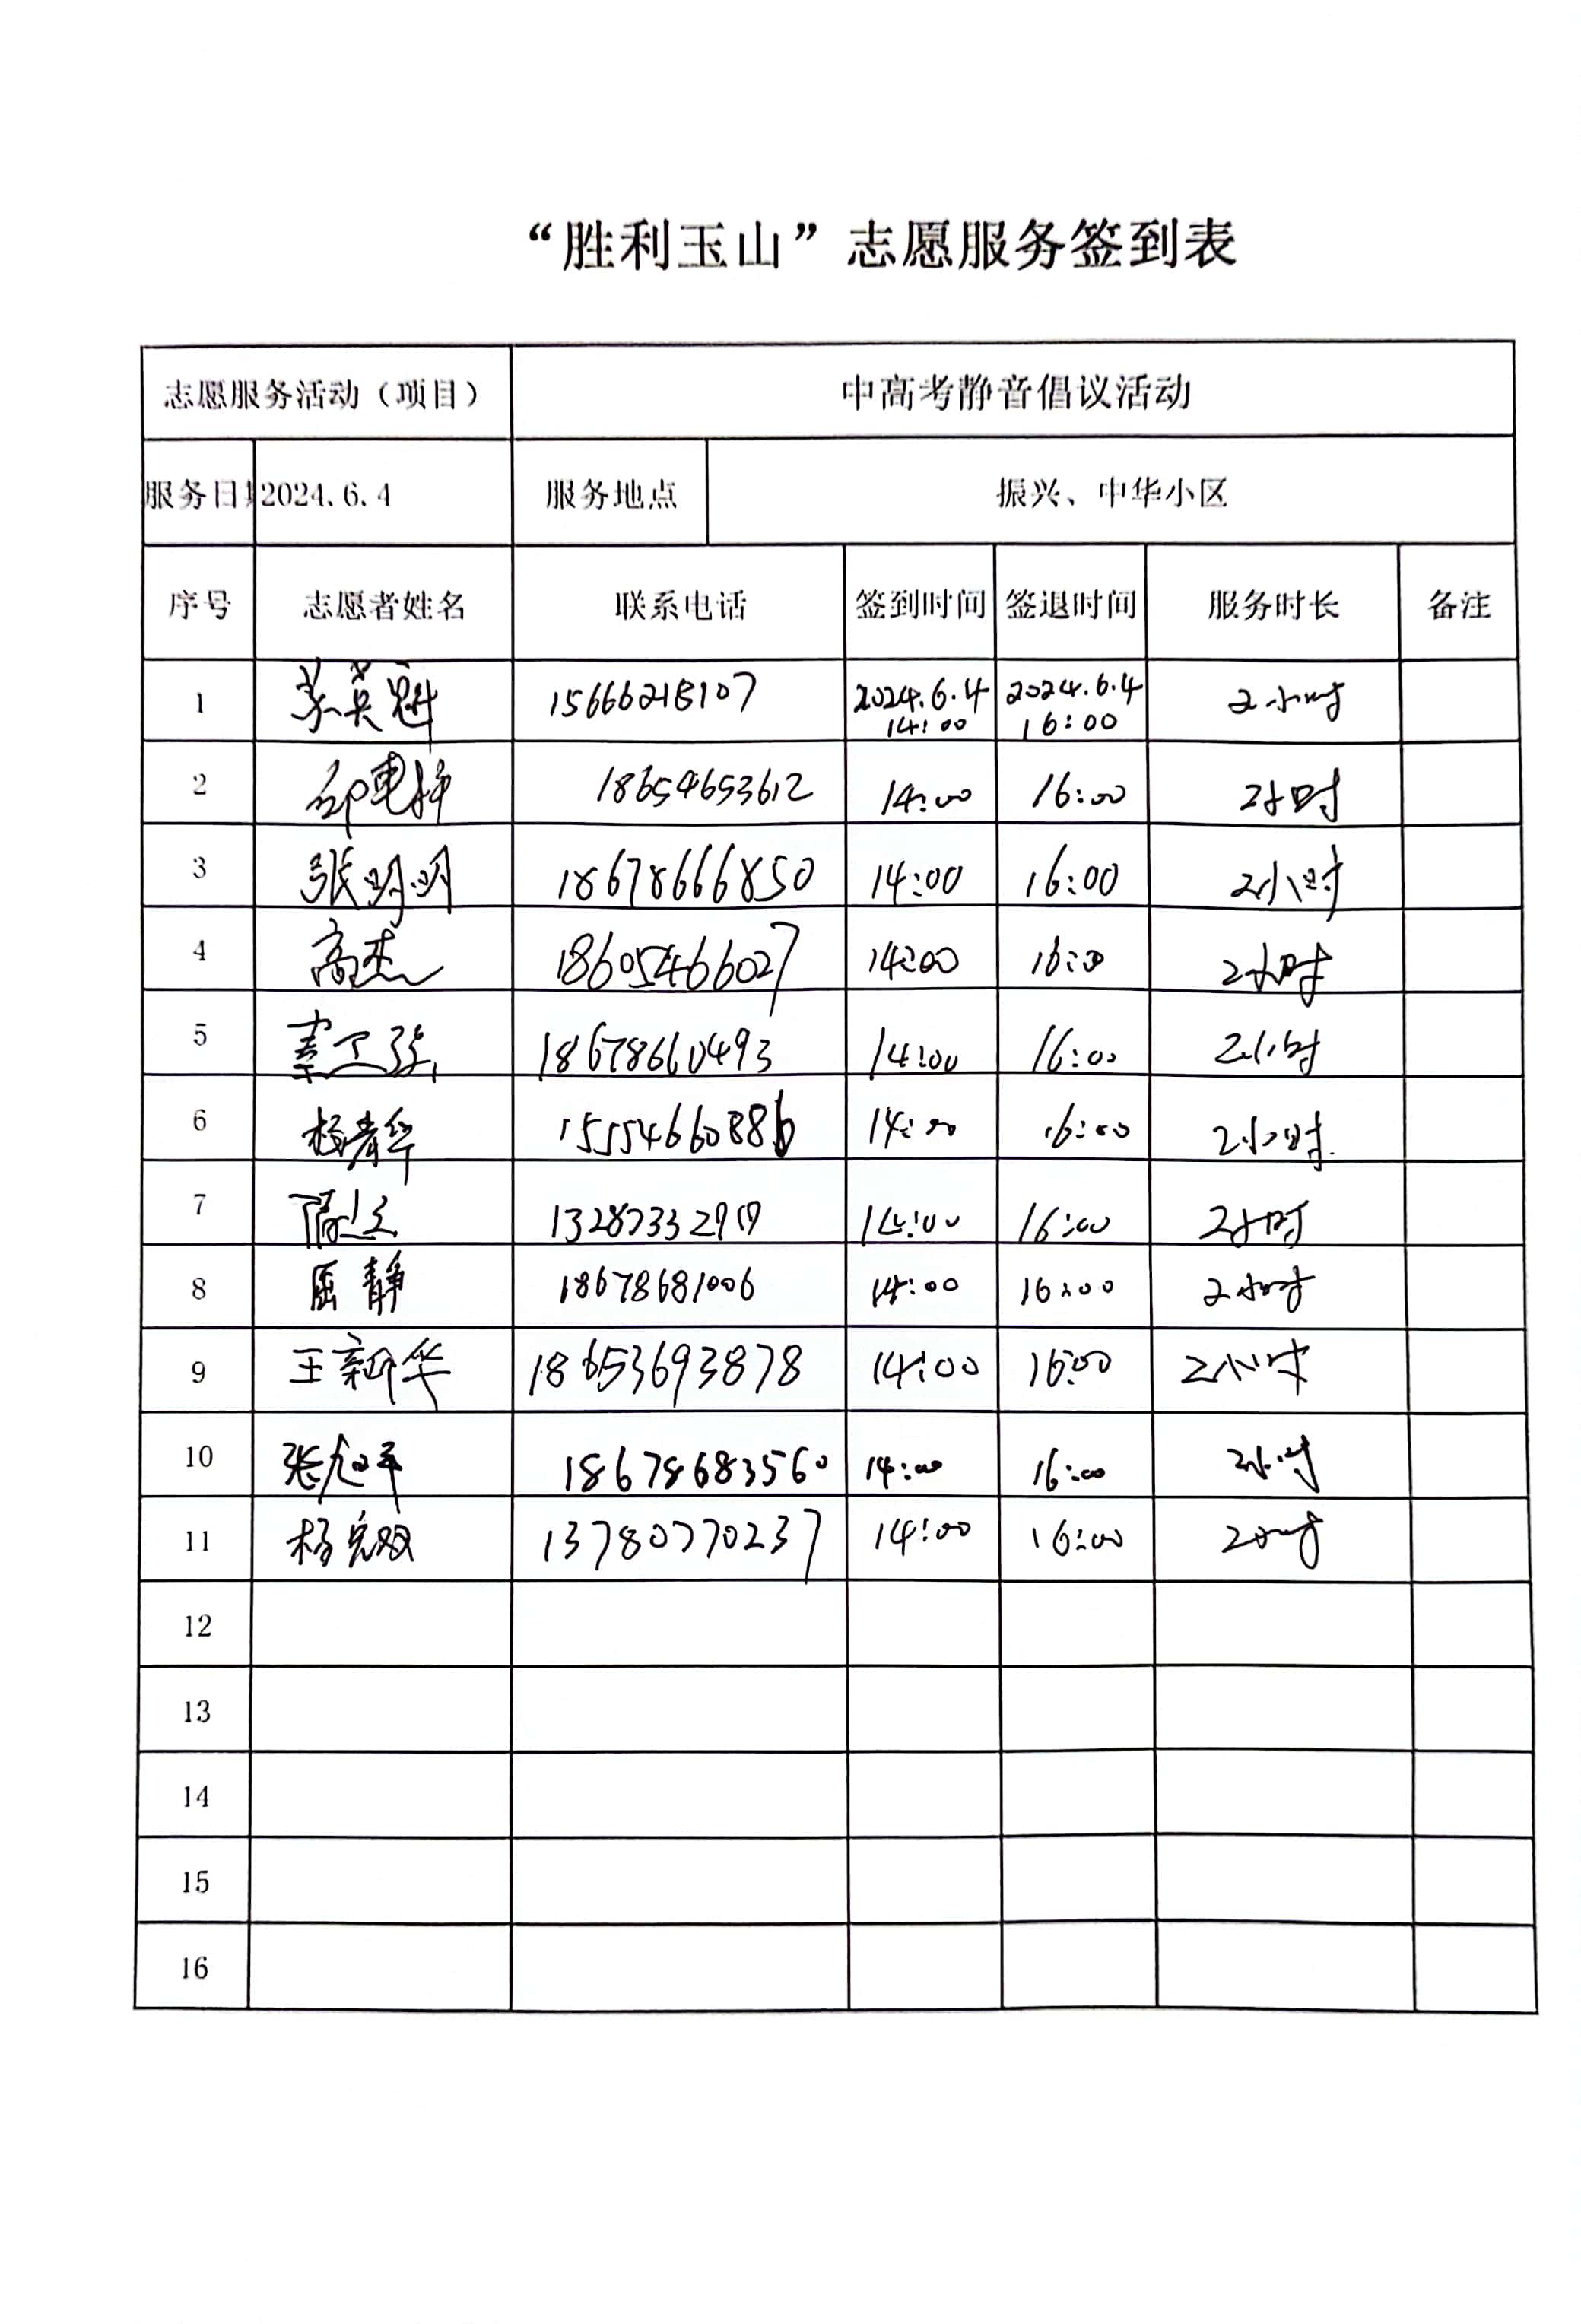 “胜利玉山”志愿服务签到表
志愿服务活动（项目） 中高考静音倡议活动
服务日期 2024.6.4 服务地点 振兴、中华小区
序号 志愿者姓名 联系电话 签到时间 签退时间 服务时长 备注
1 15666218107 2024.6.4 14:00 2024.6.4 16:00 2小时
2 18654653612 14:00 16:00 2小时
3 张明明 18678666850 14:00 16:00 2小时
4 高杰 18605466027 14:00 16:00 2小时
5 18678660493 14:00 16:00 2小时
6 杨青华 15554660886 14:00 16:00 2小时
7 14:00 16:00 2小时
8 屈静 18678681006 14:00 16:00 2小时
9 王新华 18653693878 14:00 16:00 2小时
10 张旭平 18678683560 14:00 16:00 2小时
11 13780770237 14:00 16:00 2小时
12
13
14
15
16